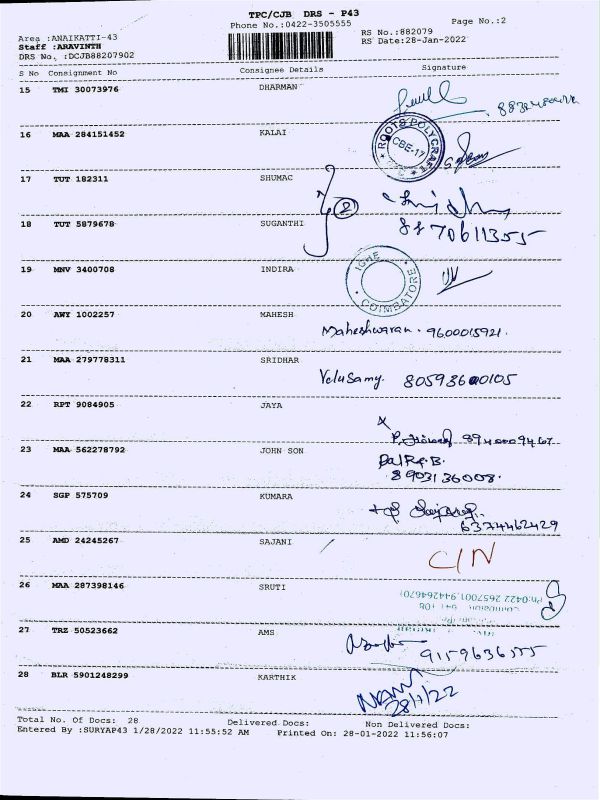 TPC/CJB DRS - P43
Phone No.:0422-3505555 Page No.:2
Area :ANAIKATTI-43 RS No.:882079
Staff :ARAVINTH RS Date:28-Jan-2022
DRS No. :DCJB88207902
S No Consignment No Consignee Details Signature
15 TMI 30073976 DHARMAN
16 MAA 284151452 KALAI
ROOTS POLYCRAFT
CBE-17
17 TUT 182311 SHUMAC
18 TUT 5879678 SUGANTHI
8870611355
19 MNV 3400708 INDIRA
IGHE
COIMBATORE
20 AWY 1002257 MAHESH
Maheshwaran. 9600015921.
21 MAA 279778311 SRIDHAR
Velusamy.
22 RPT 9084905 JAYA
23 MAA 562278792 JOHN SON
8903136008.
24 SGP 575709 KUMARA
6374462429
25 AMD 24245267 SAJANI
C/N
26 MAA 287398146 SRUTI
Ph:0422 2657001,944264670
27 TRZ 50523662 AMS
9159636555
28 BLR 5901248299 KARTHIK
28/1/22
Total No. Of Docs: 28 Delivered Docs: Non Delivered Docs:
Entered By :SURYAP43 1/28/2022 11:55:52 AM Printed On: 28-01-2022 11:56:07